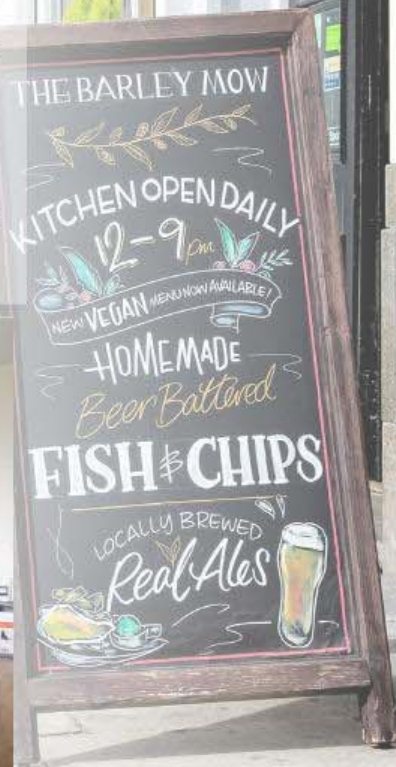 THE BARLEY MOW
KITCHEN OPEN DAILY
12-9pm
NEW VEGAN MENU NOW AVAILABLE!
HOMEMADE
Beer Battered
FISH & CHIPS
LOCALLY BREWED
Real Ales